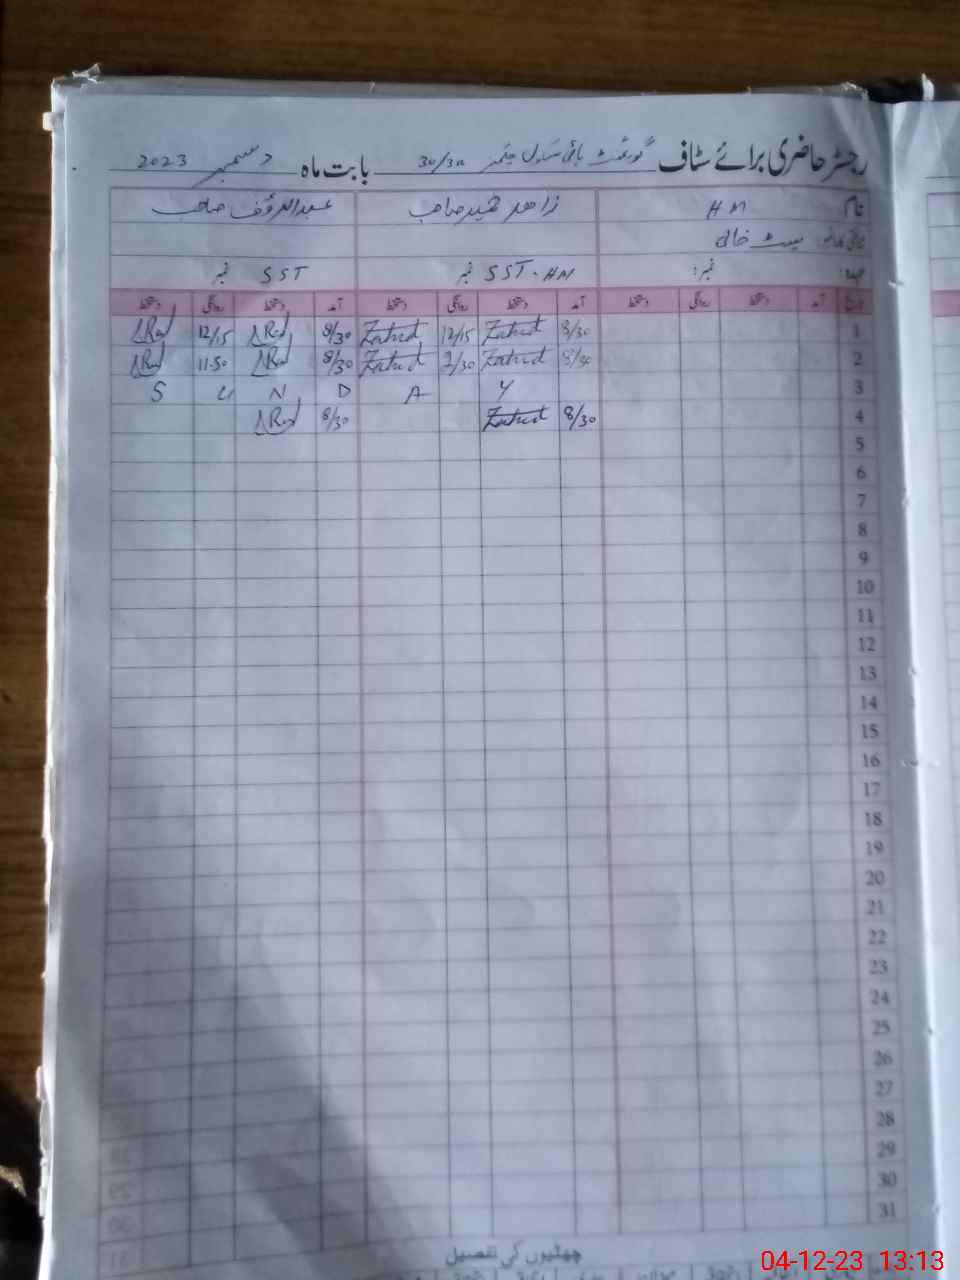 رجسٹر حاضری برائے سٹاف گورنمنٹ ہائی سکول چک نمبر 30/3R بابت ماہ دسمبر 2023
نام HM زاھد حمید صاحب عبدالرؤف صاحب
سیٹ خالی
عہدہ نمبر: SST-HM نمبر SST نمبر
تاریخ آمد دستخط روانگی دستخط آمد دستخط روانگی دستخط آمد دستخط روانگی دستخط
1 8/30 Zahid 12/15 Zahid 8/30 ARod 12/15 ARod
2 8/30 Zahid 2/30 Zahid 8/30 ARod 11-50 ARod
3 S U N D A Y
4 8/30 Zahid 8/30 ARod
5
6
7
8
9
10
11
12
13
14
15
16
17
18
19
20
21
22
23
24
25
26
27
28
29
30
31
چھٹیوں کی تفصیل
04-12-23 13:13